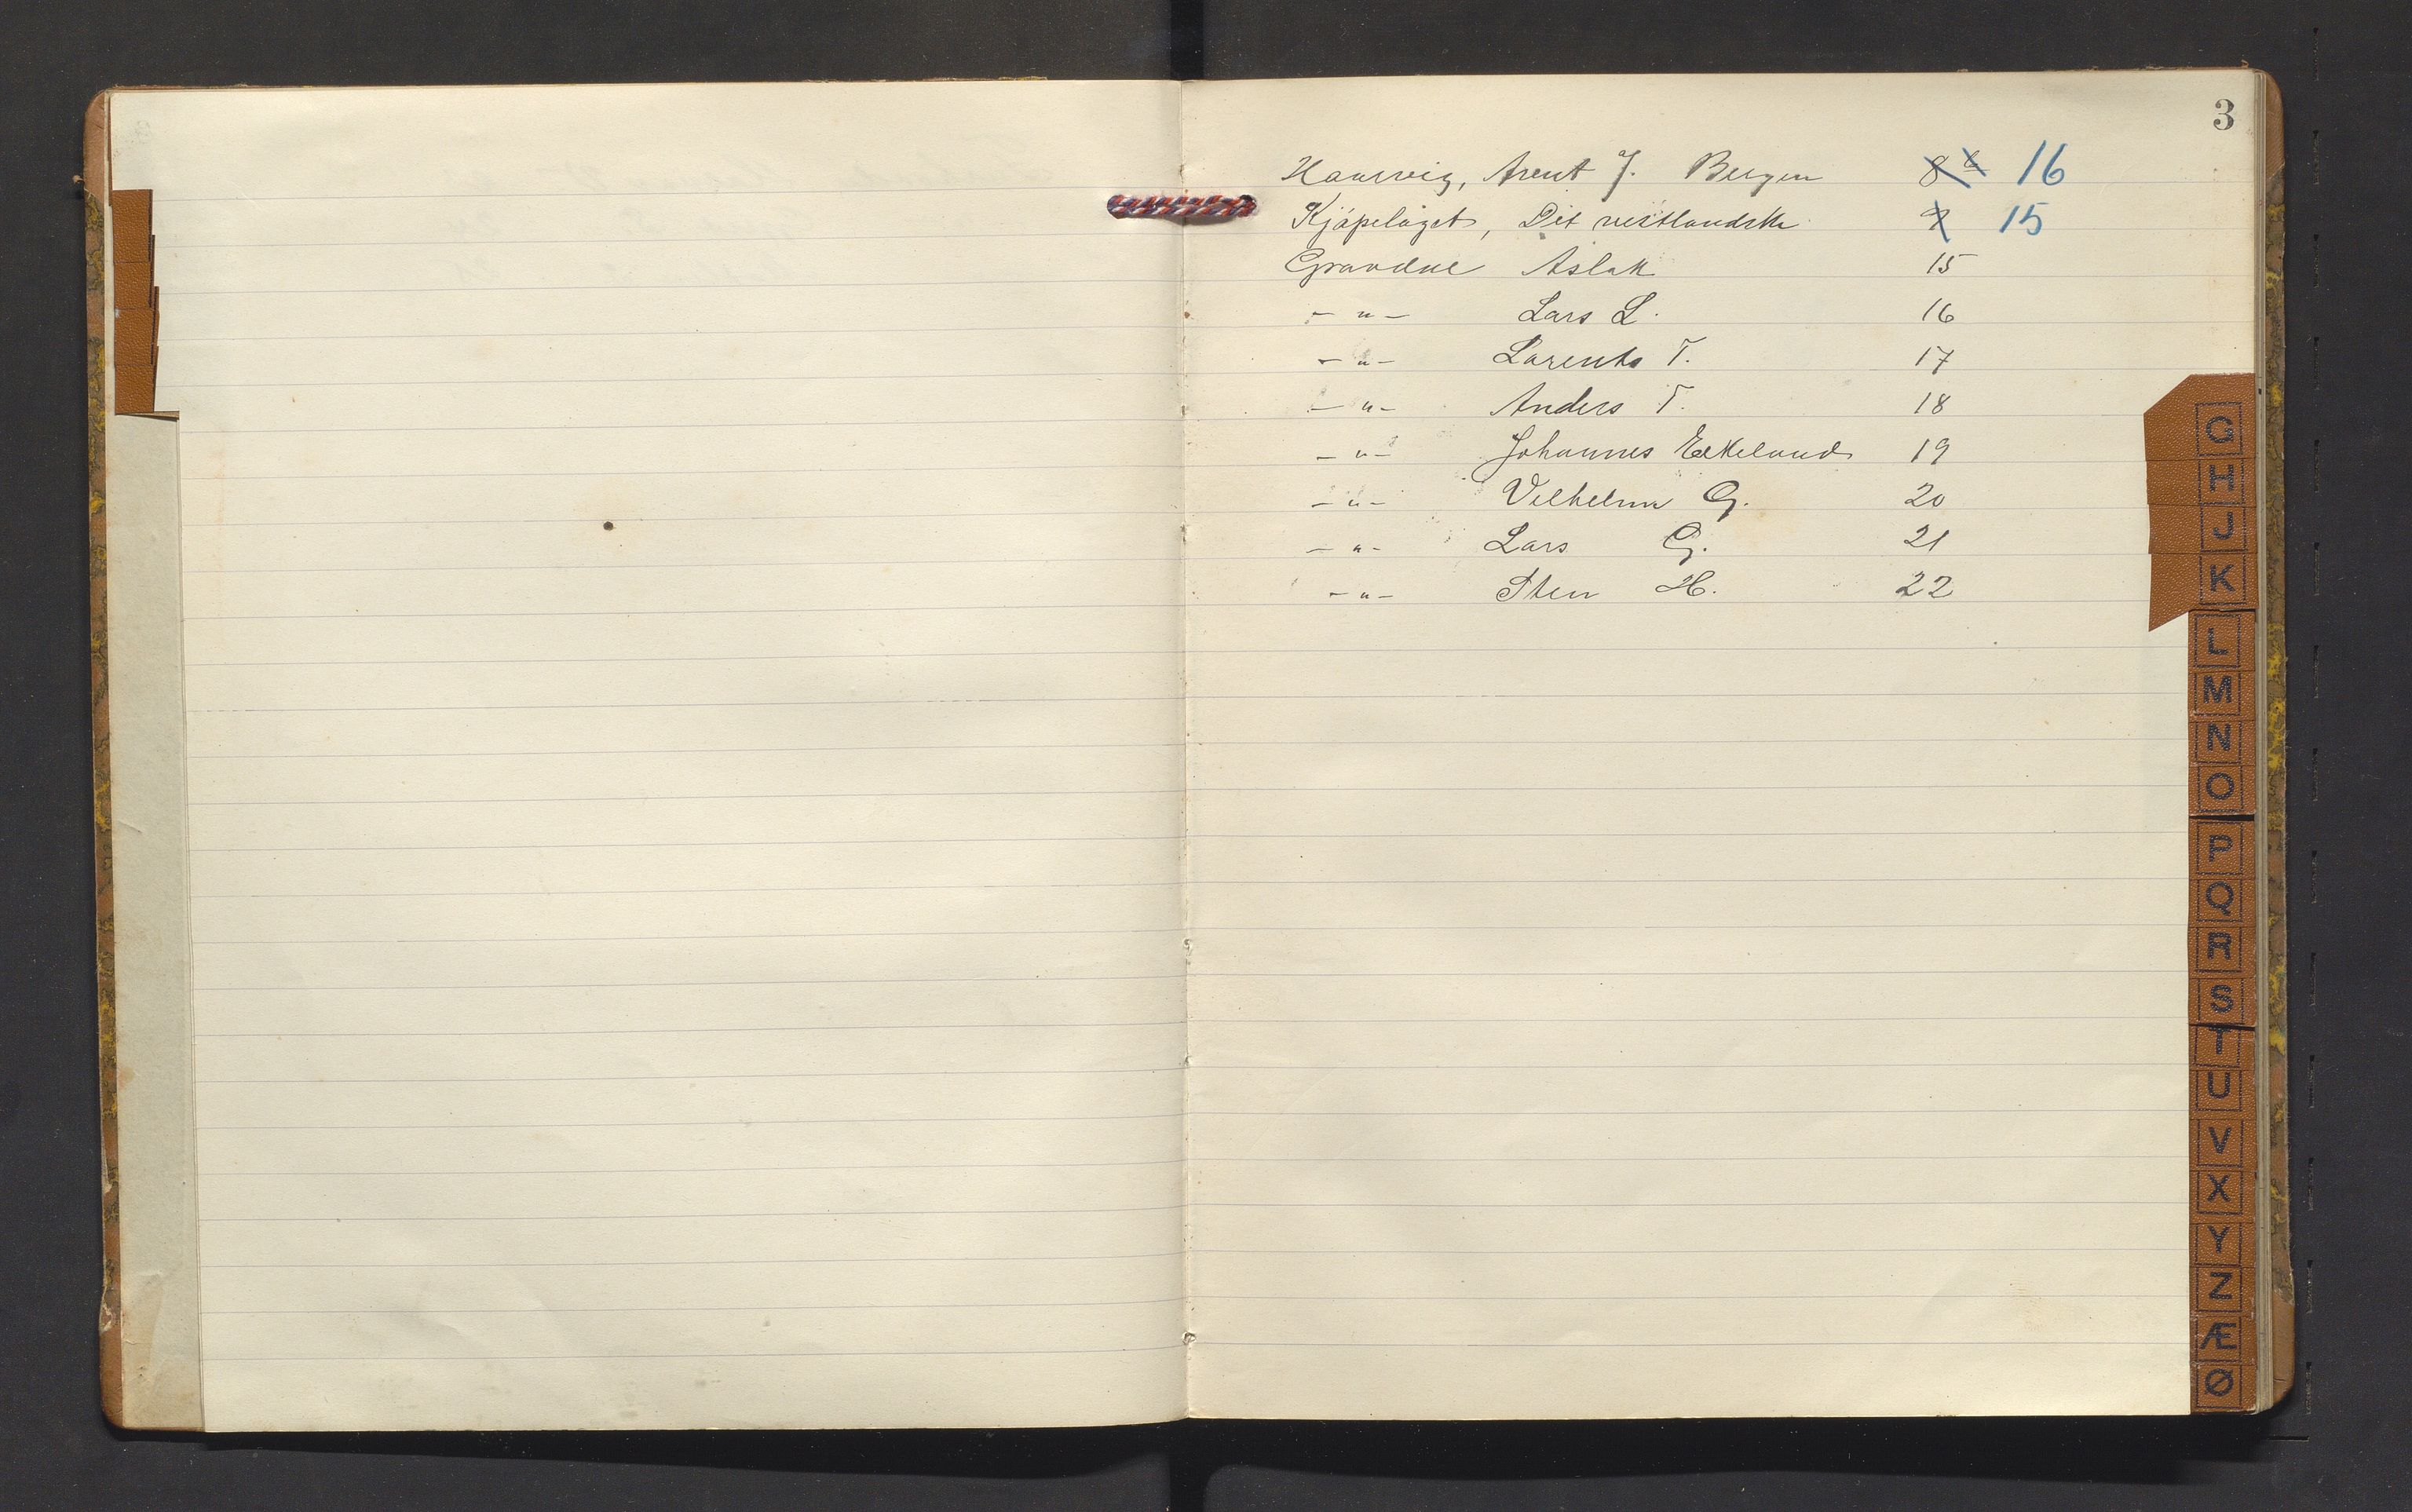 3
Arent J. Bergen 8 6 16
Kjöpelaget, Det vestlandske 9 15
Gravdal Aslak 15
- " - Lars L. 16
- " - Larents T. 17
- " - Anders T. 18
- " - Johannes Eikeland 19
- " - Vilhelm G. 20
- " - Lars G. 21
- " - Sten H. 22
G
H
J
K
L
M
N
O
P
Q
R
S
T
U
V
X
Y
Z
Æ
Ø